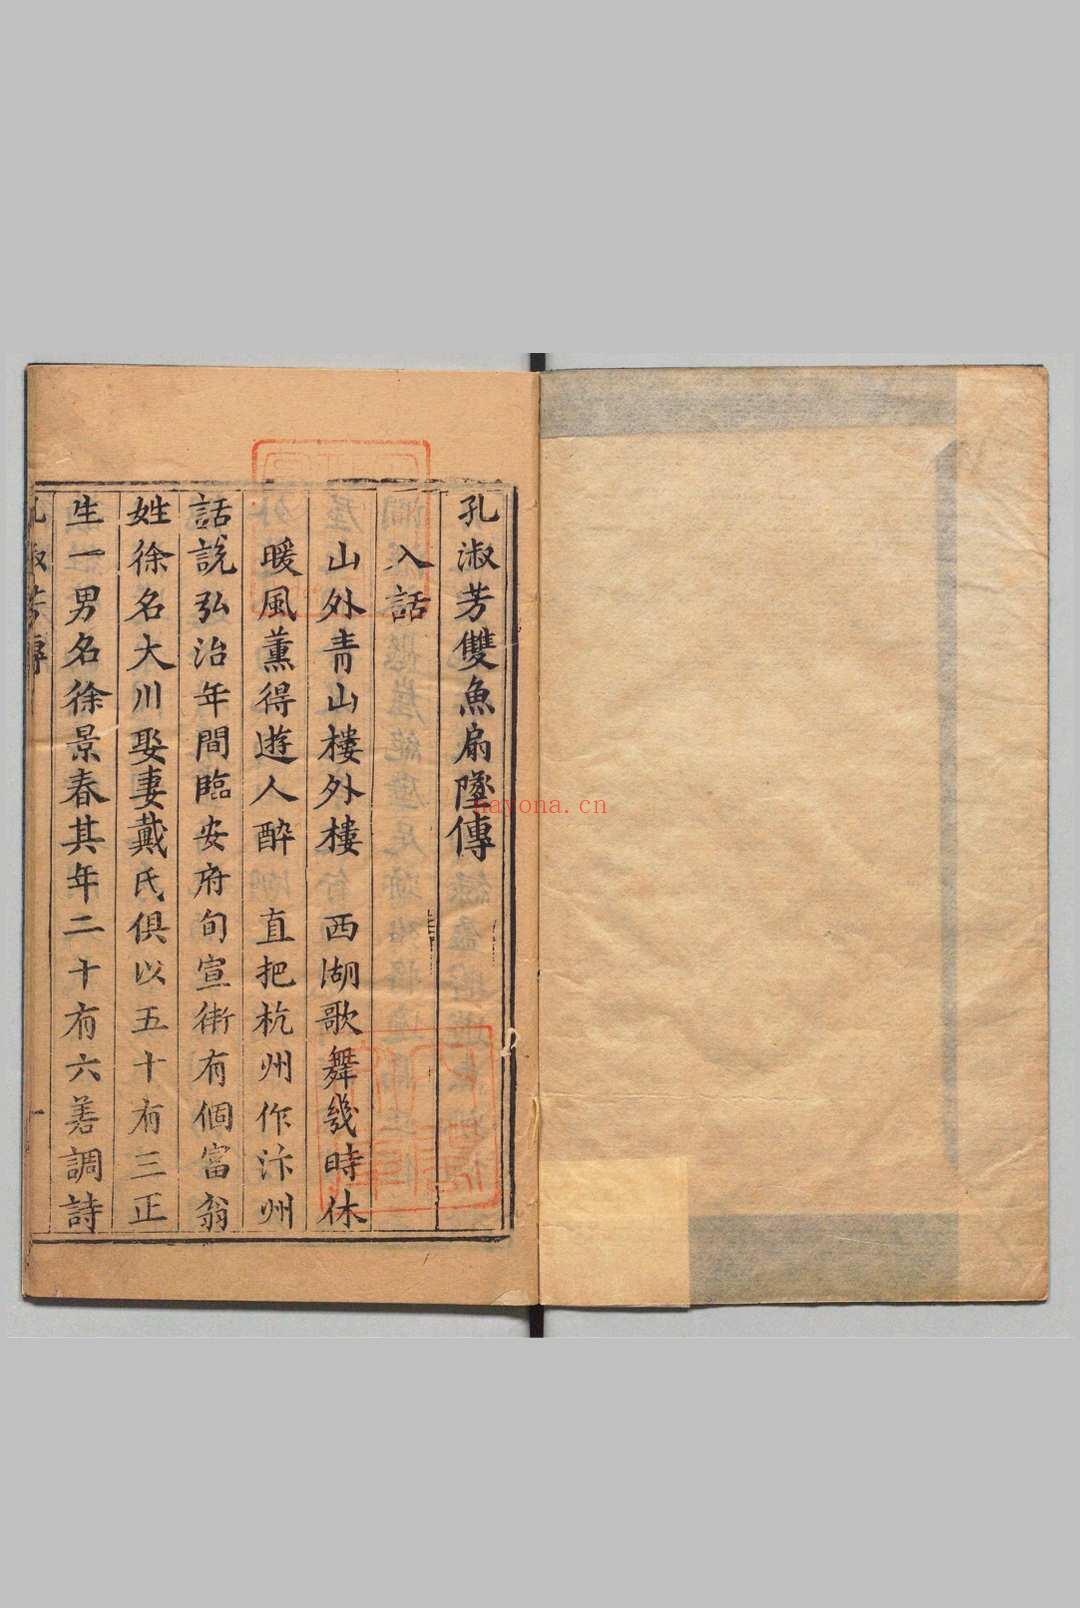 孔淑芳雙魚扇墜傳
入話
山外青山樓外樓 西湖歌舞幾時休
暖風薰得遊人醉 直把杭州作汴州
話說弘治年間臨安府旬宣街有個富翁
姓徐名大川娶妻戴氏俱以五十有三正
生一男名徐景春其年二十有六善調詩
nayona.cn